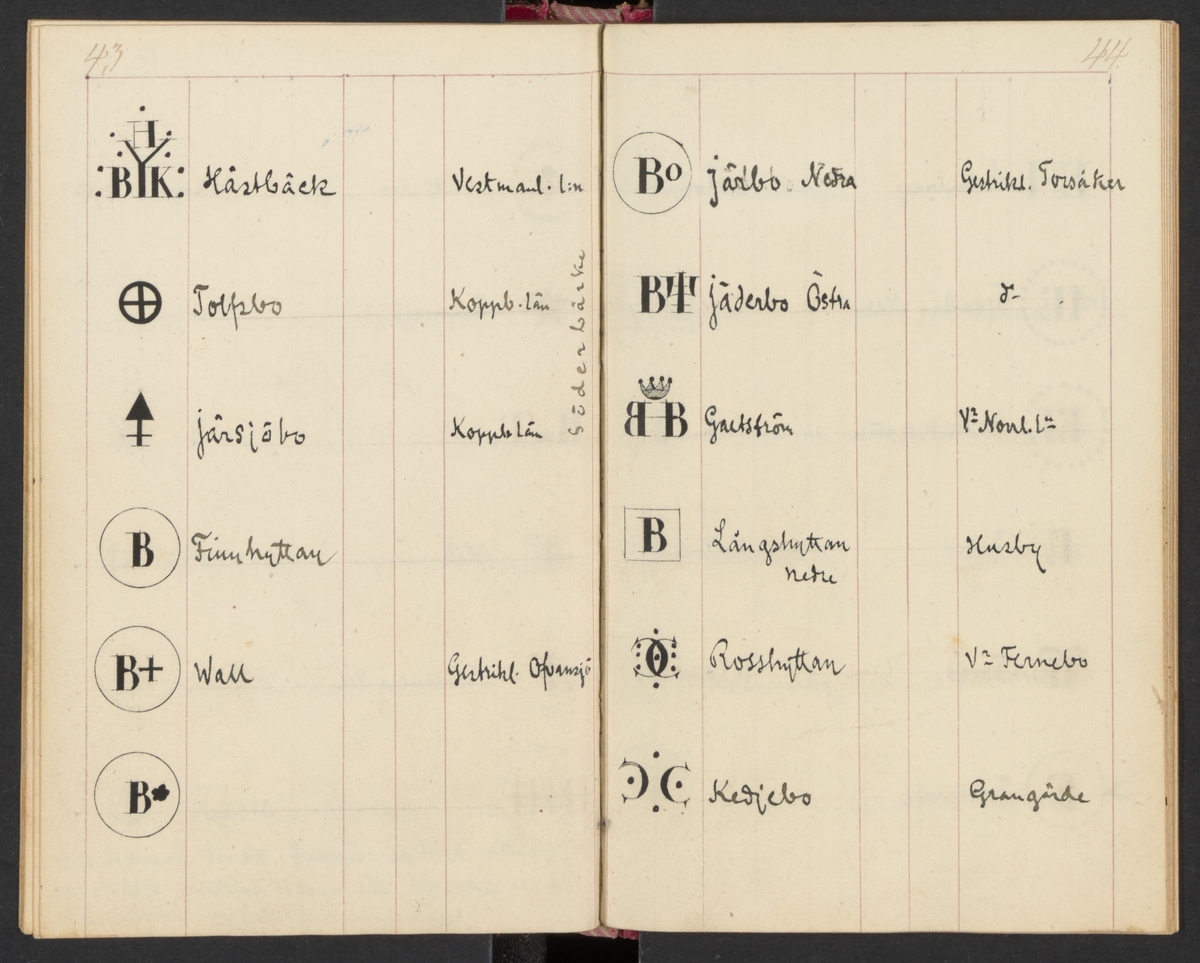 43
H
BYK Håstbäck Vestmanl. l:n
Tolfsbo Koppb. län
Järsjöbo Koppb. län
Söderbärke
B Finnhyttan
B+ Wall Gestrikl. Ofvansjö
B
44
Bo Järbo Nedra Gestrikl. Torsåker
B Jäderbo Östra d-
B B Gaetström V:a Norrl. l:n
B Långshyttan Husby
nedre
Rosshyttan V:a Fernebo
Kedjebo Grangärde